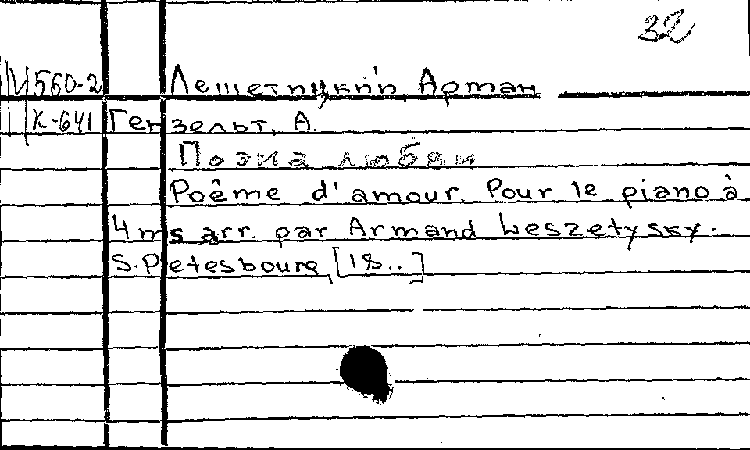 32
М560-2 Лешетицкий, Арман
К-641 Гензельт, А.
Поэма любви
Poême d'amour. Pour le piano à
4 ms arr. par Armand Leszetysky.
S. Petesbourg, [18..]